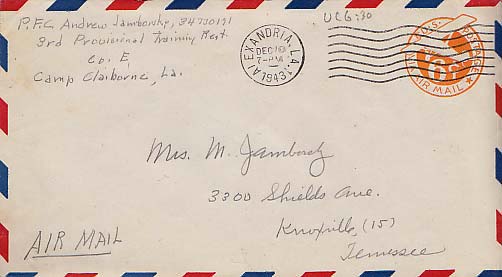 P.F.C. Andrew Jamborsky, 34730191
3rd Provisional Training Regt
Co. E,
Camp Claiborne, La.
UC6:30
ALEXANDRIA, LA.
DEC
7-PM
1943
U.S. POSTAGE
6¢
VIA AIR MAIL
Mrs. M. Jamborsky
3300 Shields Ave.
Knoxville, (15)
Tennessee
AIR MAIL